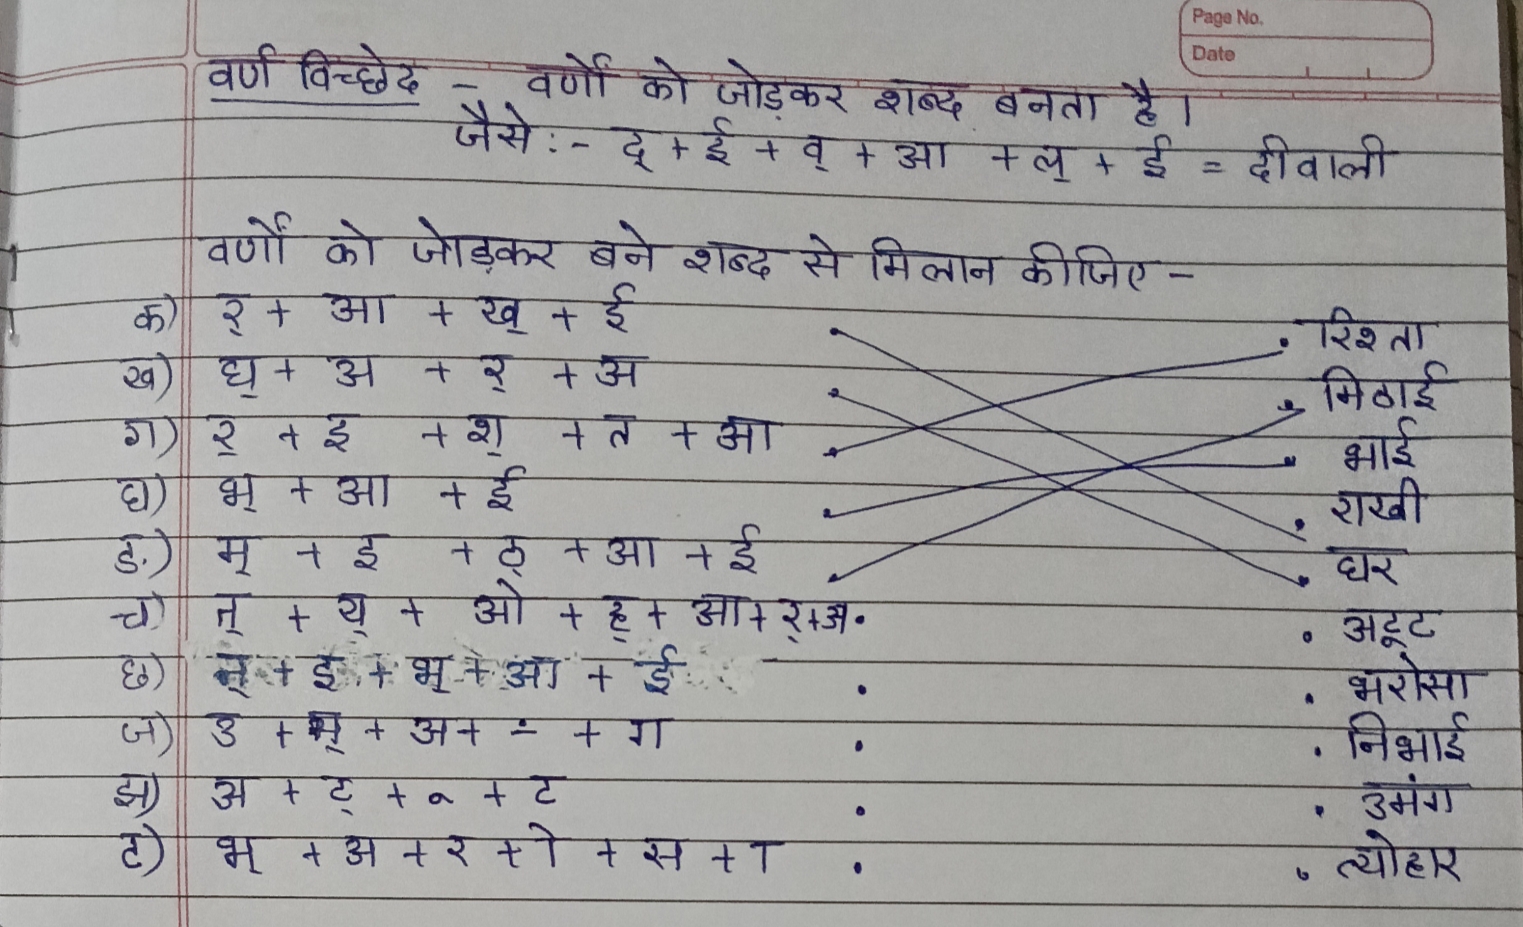 Page No.
Date
वर्ण विच्छेद - वर्णों को जोड़कर शब्द बनता है।
जैसे :- द् + ई + व् + आ + ल् + ई = दीवाली
वर्णों को जोड़कर बने शब्द से मिलान कीजिए -
क) र् + आ + ख् + ई रिश्ता
ख) घ् + अ + र् + अ मिठाई
ग) र् + इ + श् + त + आ भाई
घ) भ् + आ + ई राखी
ङ.) म् + इ + ठ् + आ + ई घर
च) त् + य् + ओ + ह् + आ + र् + अ अटूट
छ) न् + इ + भ् + आ + ई भरोसा
ज) उ + म् + अ + ं + ग निभाई
झ) अ + ट् + ू + ट उमंग
ट) भ् + अ + र + ो + स + ा त्योहार